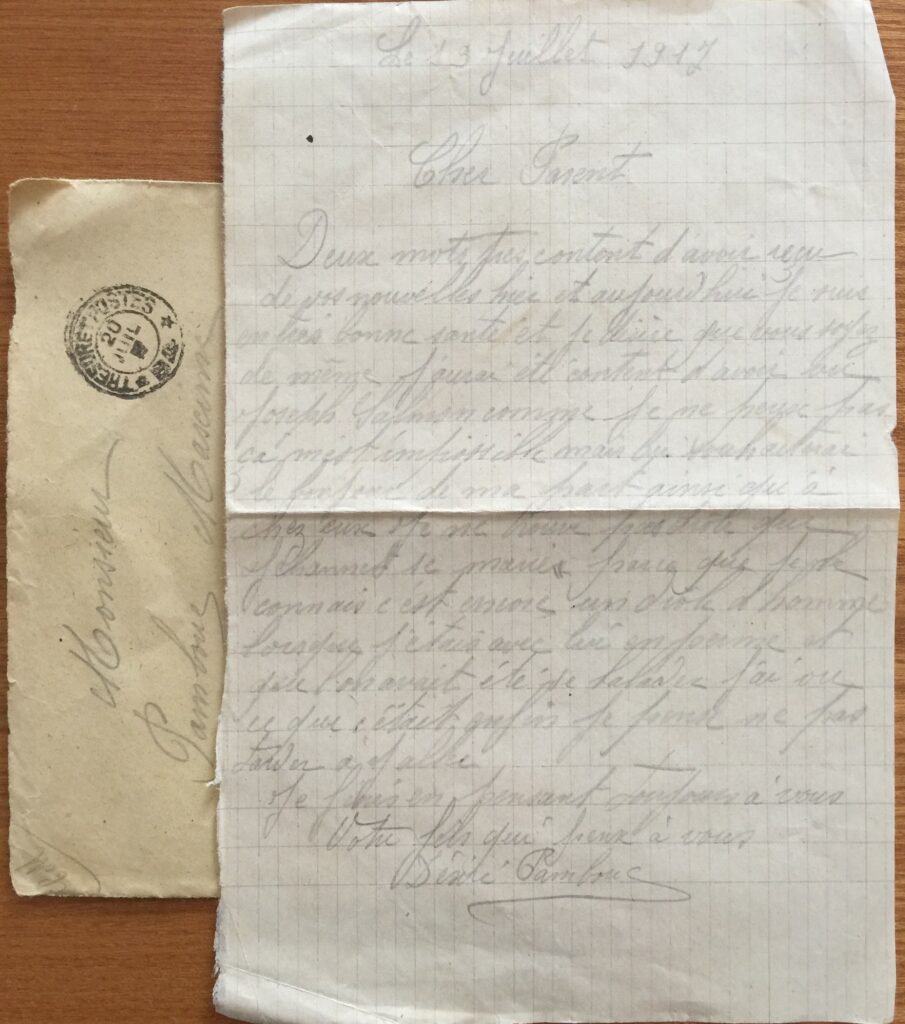 Le 13 Juillet 1917
Cher Parent
Deux mots tres content d'avoir reçu
de vos nouvelles hier et aujourd'hui Je suis
en tres bonne santé et je désire que vous soyez
de même J'aurai été content d'avoir vu
Joseph Salmon comme je ne pense pas
ça m'est impossible mais lui souhaiterai
le bonjour de ma part ainsi qu'à
chez eux Je ne trouve pas drole que
se marie parce que je le
connais c'est encore un drole d'homme
lorsque j'étais avec lui en perme et
que l'on avait été se balader j'ai vu
ce que c'était enfin je pense ne pas
tarder à
Je finis en pensant toujours à vous
Votre fils qui pense à vous
Désiré Pambouc
TRESOR ET POSTES
20
JUIL
Monsieur
Pambouc